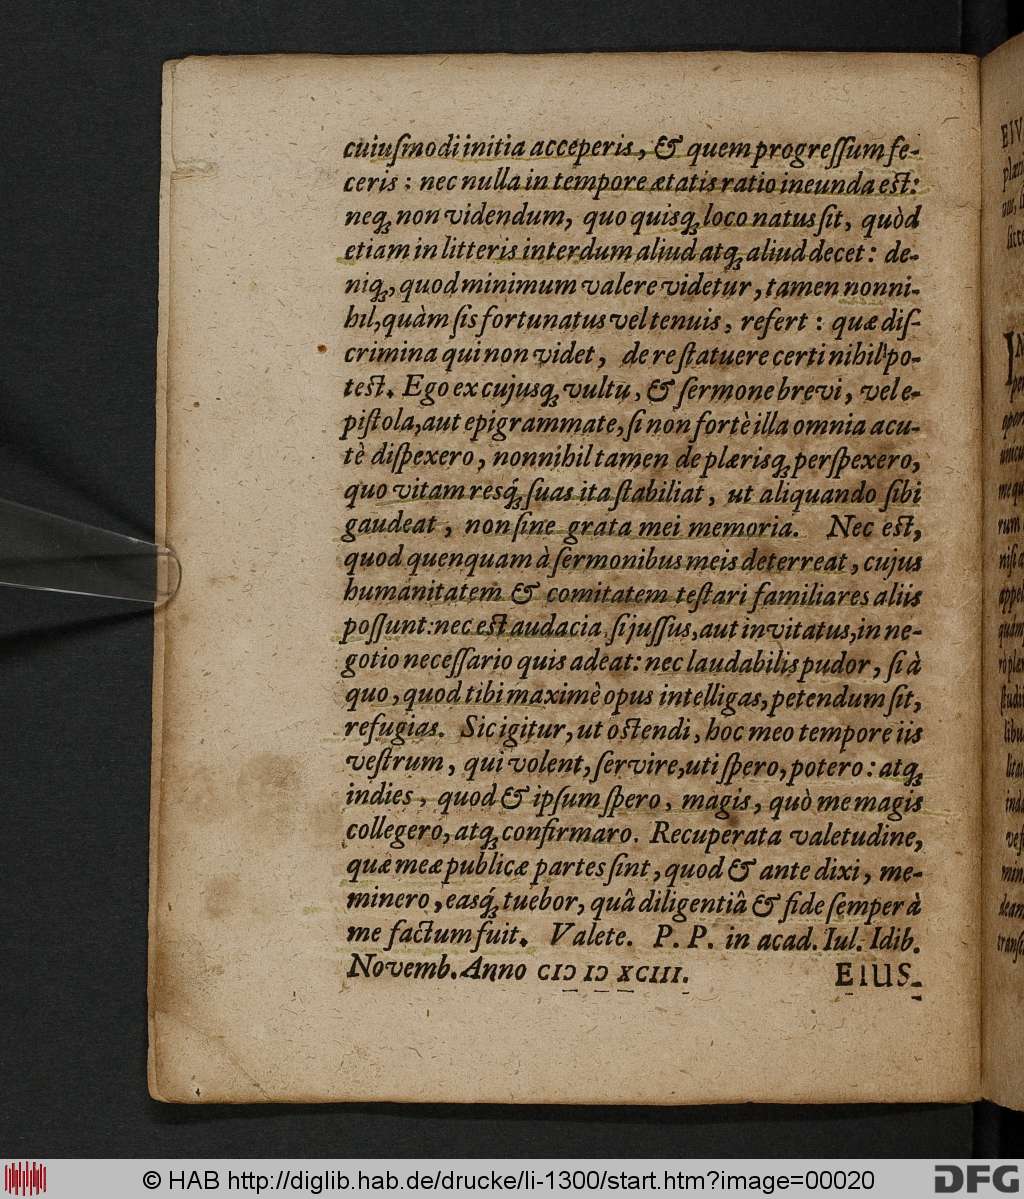 cuiuſmodi initia acceperis, & quem progreſſum fe-
ceris: nec nulla in tempore ætatis ratio ineunda est:
neqꝫ non videndum, quo quisqꝫ loco natus ſit, quòd
etiam in litteris interdum aliud atqꝫ aliud decet: de-
niqꝫ, quod minimum valere videtur, tamen nonni-
hil, quàm ſis fortunatus vel tenuis, refert: quæ diſ-
crimina qui non videt, de re ſtatuere certi nihil po-
test. Ego ex cujusqꝫ vultu, & ſermone brevi, vel e-
piſtola, aut epigrammate, ſi non fortè illa omnia acu-
tè diſpexero, nonnihil tamen de plærisqꝫ perſpexero,
quo vitam resqꝫ́ ſuas ita ſtabiliat, ut aliquando ſibi
gaudeat, non ſine grata mei memoria. Nec est,
quod quenquam à ſermonibus meis deterreat, cujus
humanitatem & comitatem teſtari familiares aliis
poſſunt: nec est audacia, ſi juſſus, aut invitatus, in ne-
gotio neceſſario quis adeat: nec laudabilis pudor, ſi à
quo, quod tibi maximè opus intelligas, petendum ſit,
refugias. Sic igitur, ut ostendi, hoc meo tempore iis
veſtrum, qui volent, ſervire, uti ſpero, potero: atqꝫ
indies, quod & ipſum ſpero, magis, quò me magis
collegero, atqꝫ confirmaro. Recuperata valetudine,
quæ meæ publicæ partes ſint, quod & ante dixi, me-
minero, easqꝫ́ tuebor, quâ diligentiâ & fide ſemper à
me factum fuit. Valete. P. P. in acad. Iul. Idib.
Novemb. Anno CIↃ IↃ XCIII.
EIUS.
© HAB http://diglib.hab.de/drucke/li-1300/start.htm?image=00020
DFG